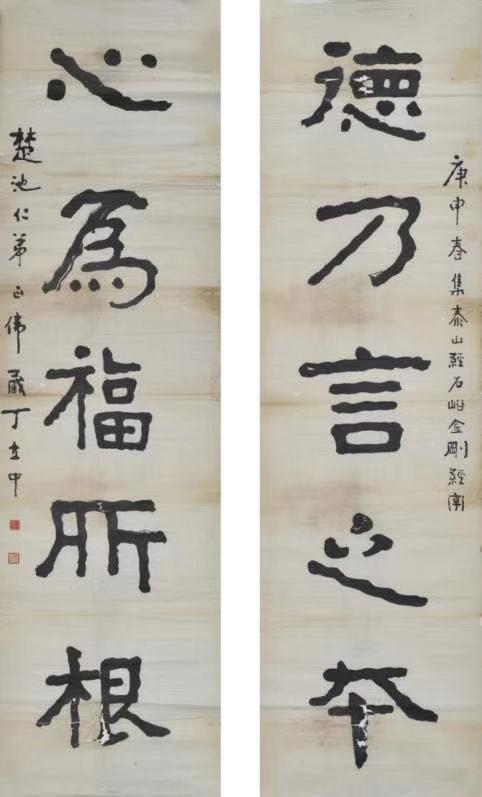 德乃言之夲
庚申春集泰山經石峪金剛經
心為福所根
楚池仁弟正偉丁立中